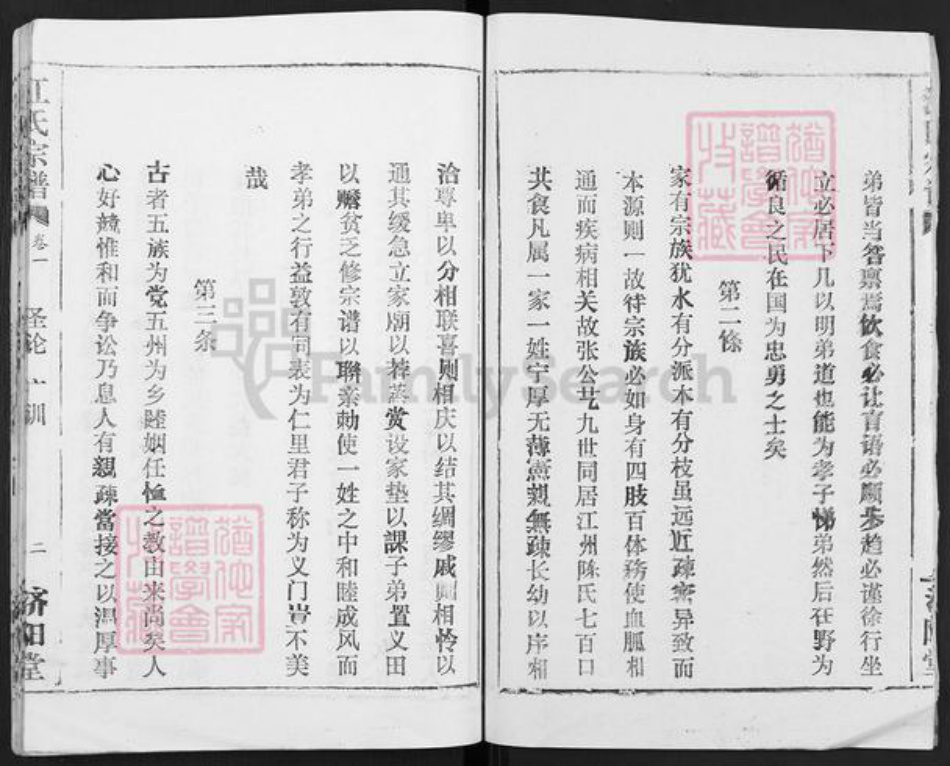 弟皆当咨禀焉飲食必让言语必顾步趋必谨徐行坐
立必居下凡以明弟道也能为孝子悌弟然后在野为
循良之民在国为忠勇之士矣
第二條
家有宗族犹水有分派木有分枝虽远近疎密异致而
本源则一故待宗族必如身有四肢百体務使血脈相
通而疾病相关故张公艺九世同居江州陈氏七百口
共食凡属一家一姓宁厚无薄寕親無疎长幼以序相
洽尊卑以分相联喜则相庆以结其绸缪戚则相怜以
通其缓急立家廟以荐蒸赏设家垫以課子弟置义田
以赡贫乏修宗谱以聯亲勅使一姓之中和睦成风而
孝弟之行益敦有司表为仁里君子称为义门岂不美
哉
第三条
古者五族为党五州为乡睦姻任恤之教由来尚矣人
心好競惟和而争讼乃息人有親疎當接之以温厚事
江氏宗譜
卷一
圣论十训
二
济阳堂
FamilySearch
猶他家譜學會收藏
猶他家譜學會